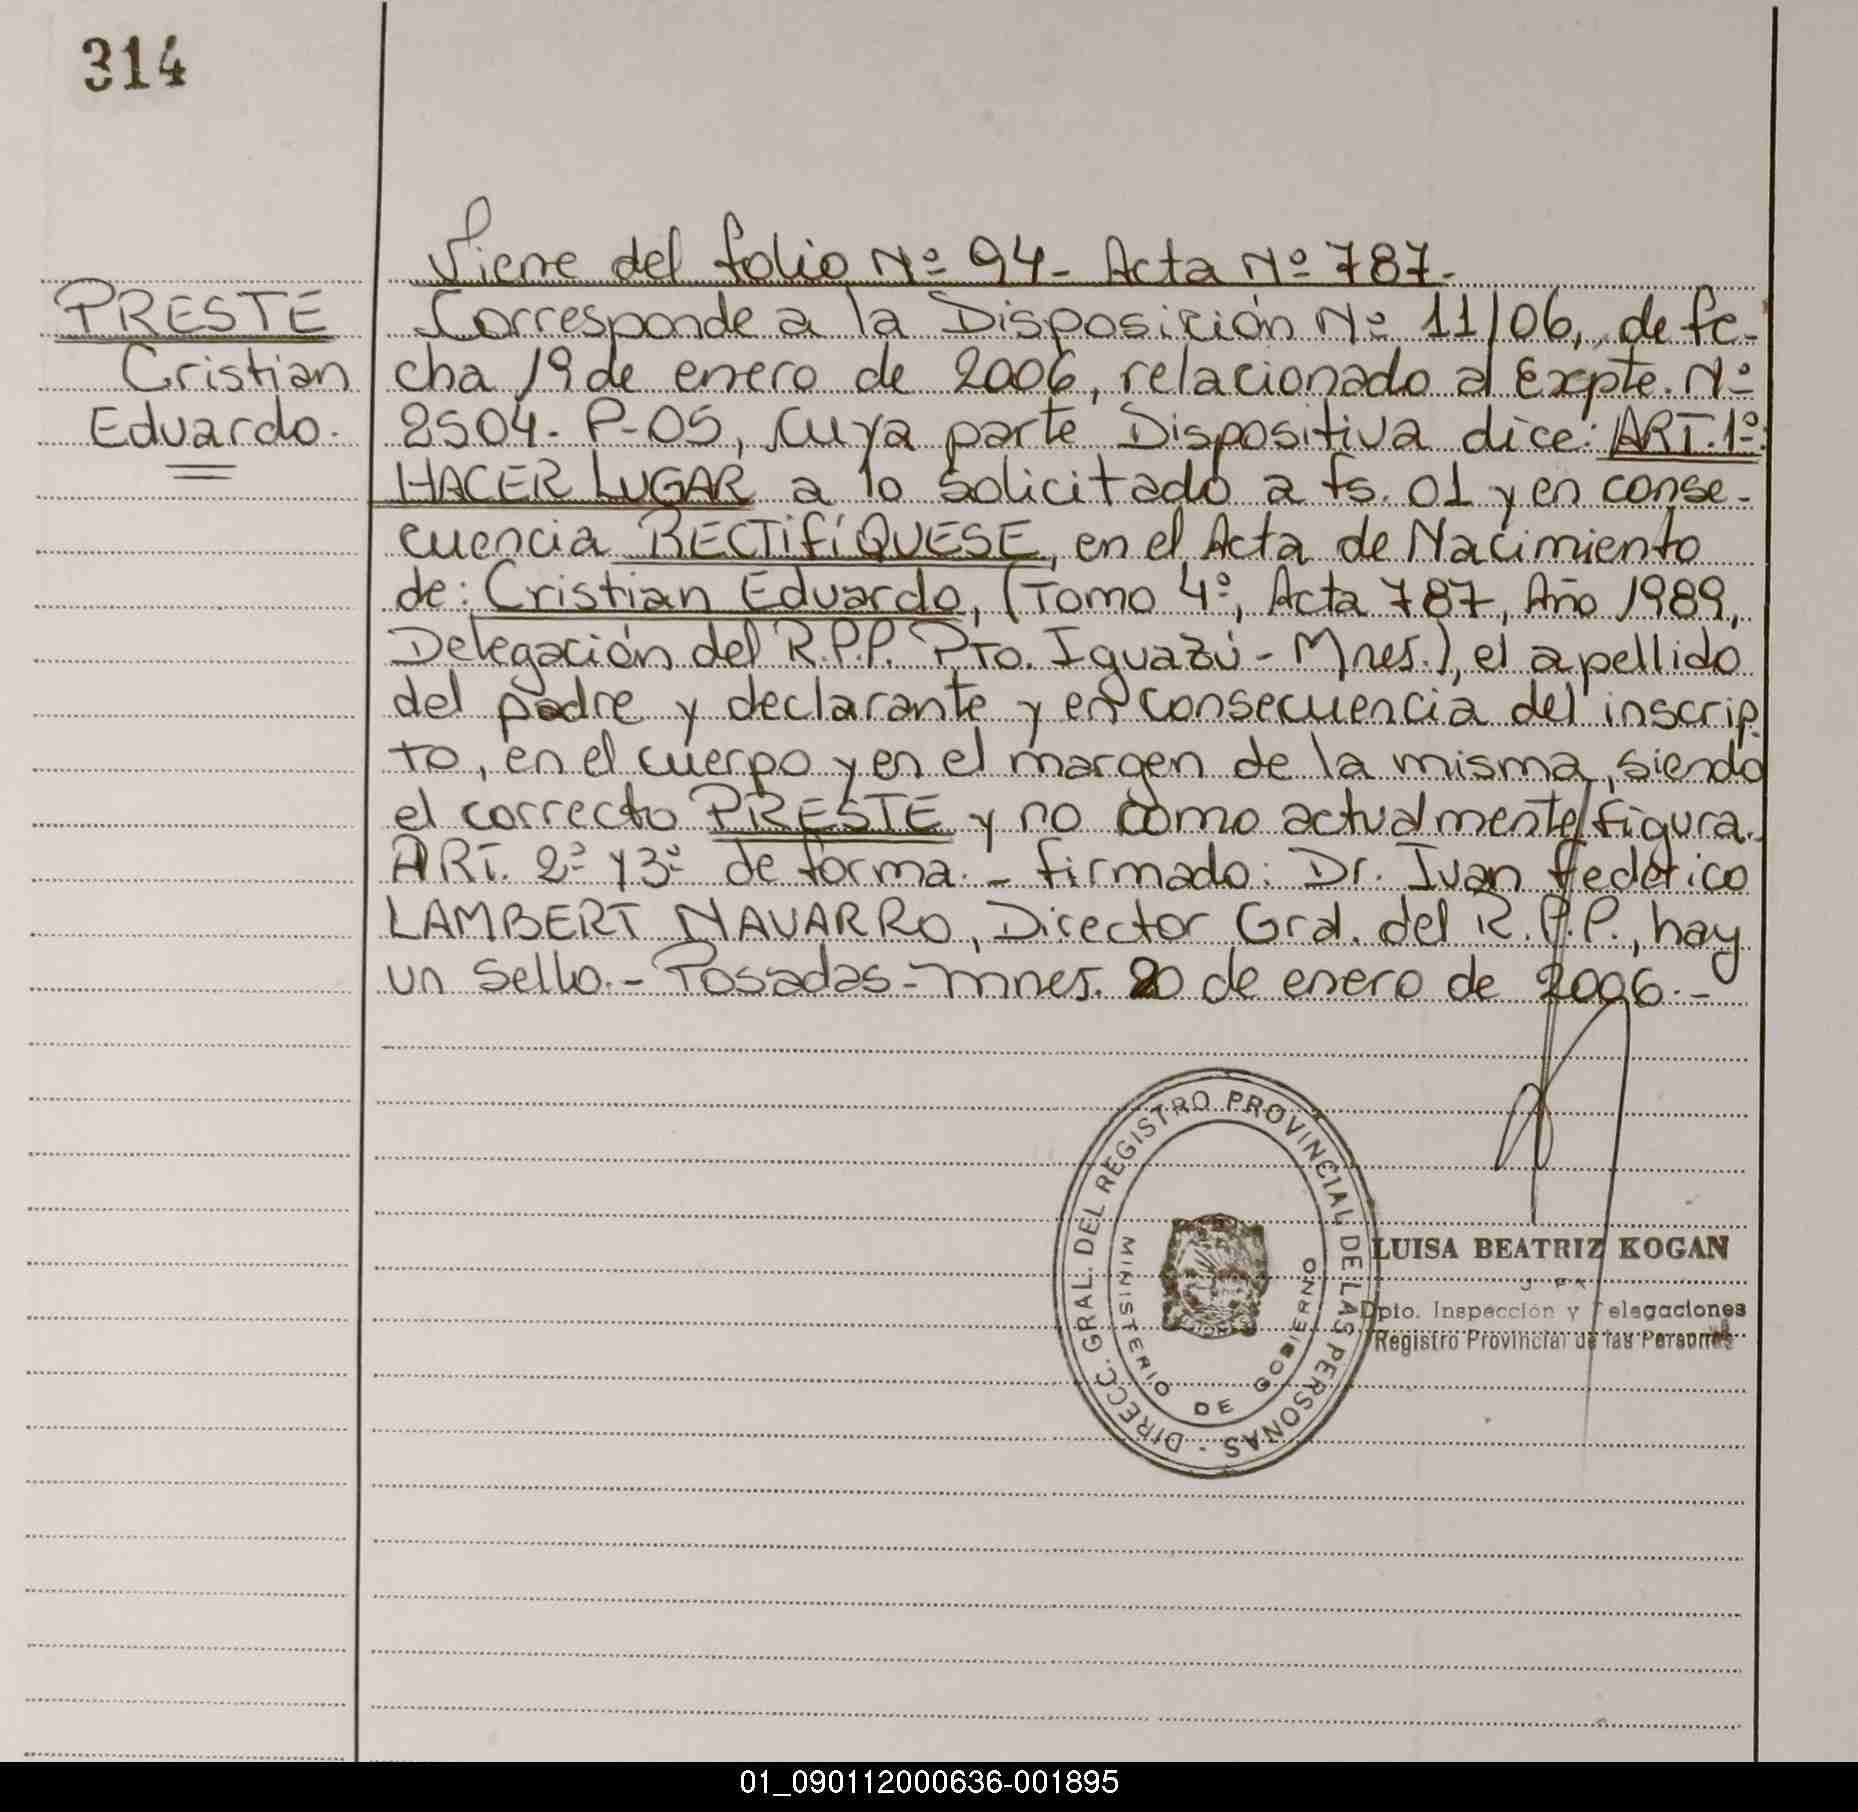 314
Viene del folio Nº 94- Acta Nº 787-
PRESTE
Cristian
Eduardo.
Corresponde a la Disposición Nº 11/06, de fe-
cha 19 de enero de 2006, relacionado al Expte. Nº
2504- P-05, cuya parte Dispositiva dice: ART. 1º:
HACER LUGAR a lo solicitado a fs. 01 y en conse-
cuencia RECTIFÍQUESE, en el Acta de Nacimiento
de: Cristian Eduardo, (Tomo 4º, Acta 787, Año 1989,
Delegación del R.P.P. Pto. Iguazú - Mnes.), el apellido
del padre y declarante y en consecuencia del inscrip-
to, en el cuerpo y en el margen de la misma, siendo
el correcto PRESTE y no como actualmente figura.-
ART. 2º y 3º de forma.- firmado: Dr. Ivan federico
LAMBERT NAVARRO, Director Gral. del R.P.P., hay
un sello.- Posadas - mnes. 20 de enero de 2006.-
DIRECC. GRAL. DEL REGISTRO PROVINCIAL DE LAS PERSONAS -
MINISTERIO DE GOBIERNO
LUISA BEATRIZ KOGAN
Dpto. Inspección y Delegaciones
Registro Provincial de las Personas
01_090112000636-001895